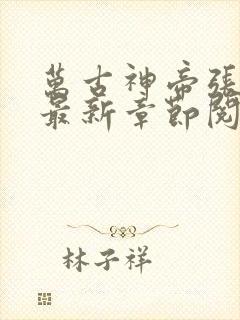 萬古神帝張
最新章節閱
林子祥